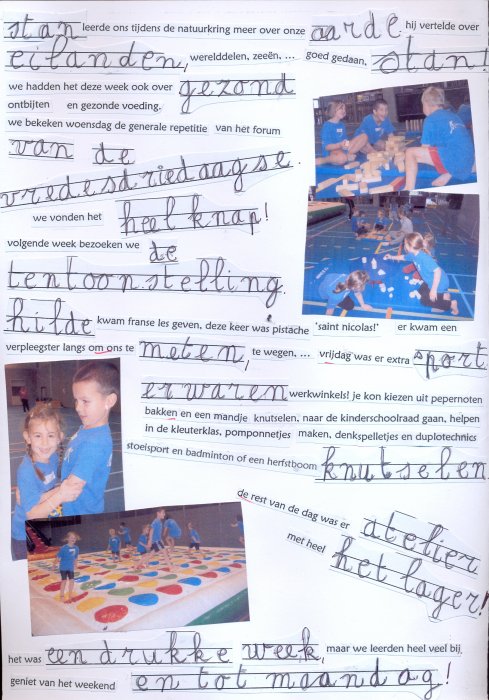 stan leerde ons tijdens de natuurkring meer over onze aarde hij vertelde over
eilanden, werelddelen, zeeën, ... goed gedaan, stan!
we hadden het deze week ook over gezond
ontbijten en gezonde voeding.
we bekeken woensdag de generale repetitie van het forum
van de
vredesdriedaagse.
we vonden het heel knap!
volgende week bezoeken we de
tentoonstelling.
hilde kwam franse les geven, deze keer was pistache 'saint nicolas!' er kwam een
verpleegster langs om ons te meten, te wegen, ... vrijdag was er extra sport
er waren werkwinkels! je kon kiezen uit pepernoten
bakken en een mandje knutselen, naar de kinderschoolraad gaan, helpen
in de kleuterklas, pomponnetjes maken, denkspelletjes en duplotechnics
stoelsport en badminton of een herfstboom knutselen
de rest van de dag was er atelier
met heel het lager!
het was een drukke week, maar we leerden heel veel bij,
geniet van het weekend en tot maandag!